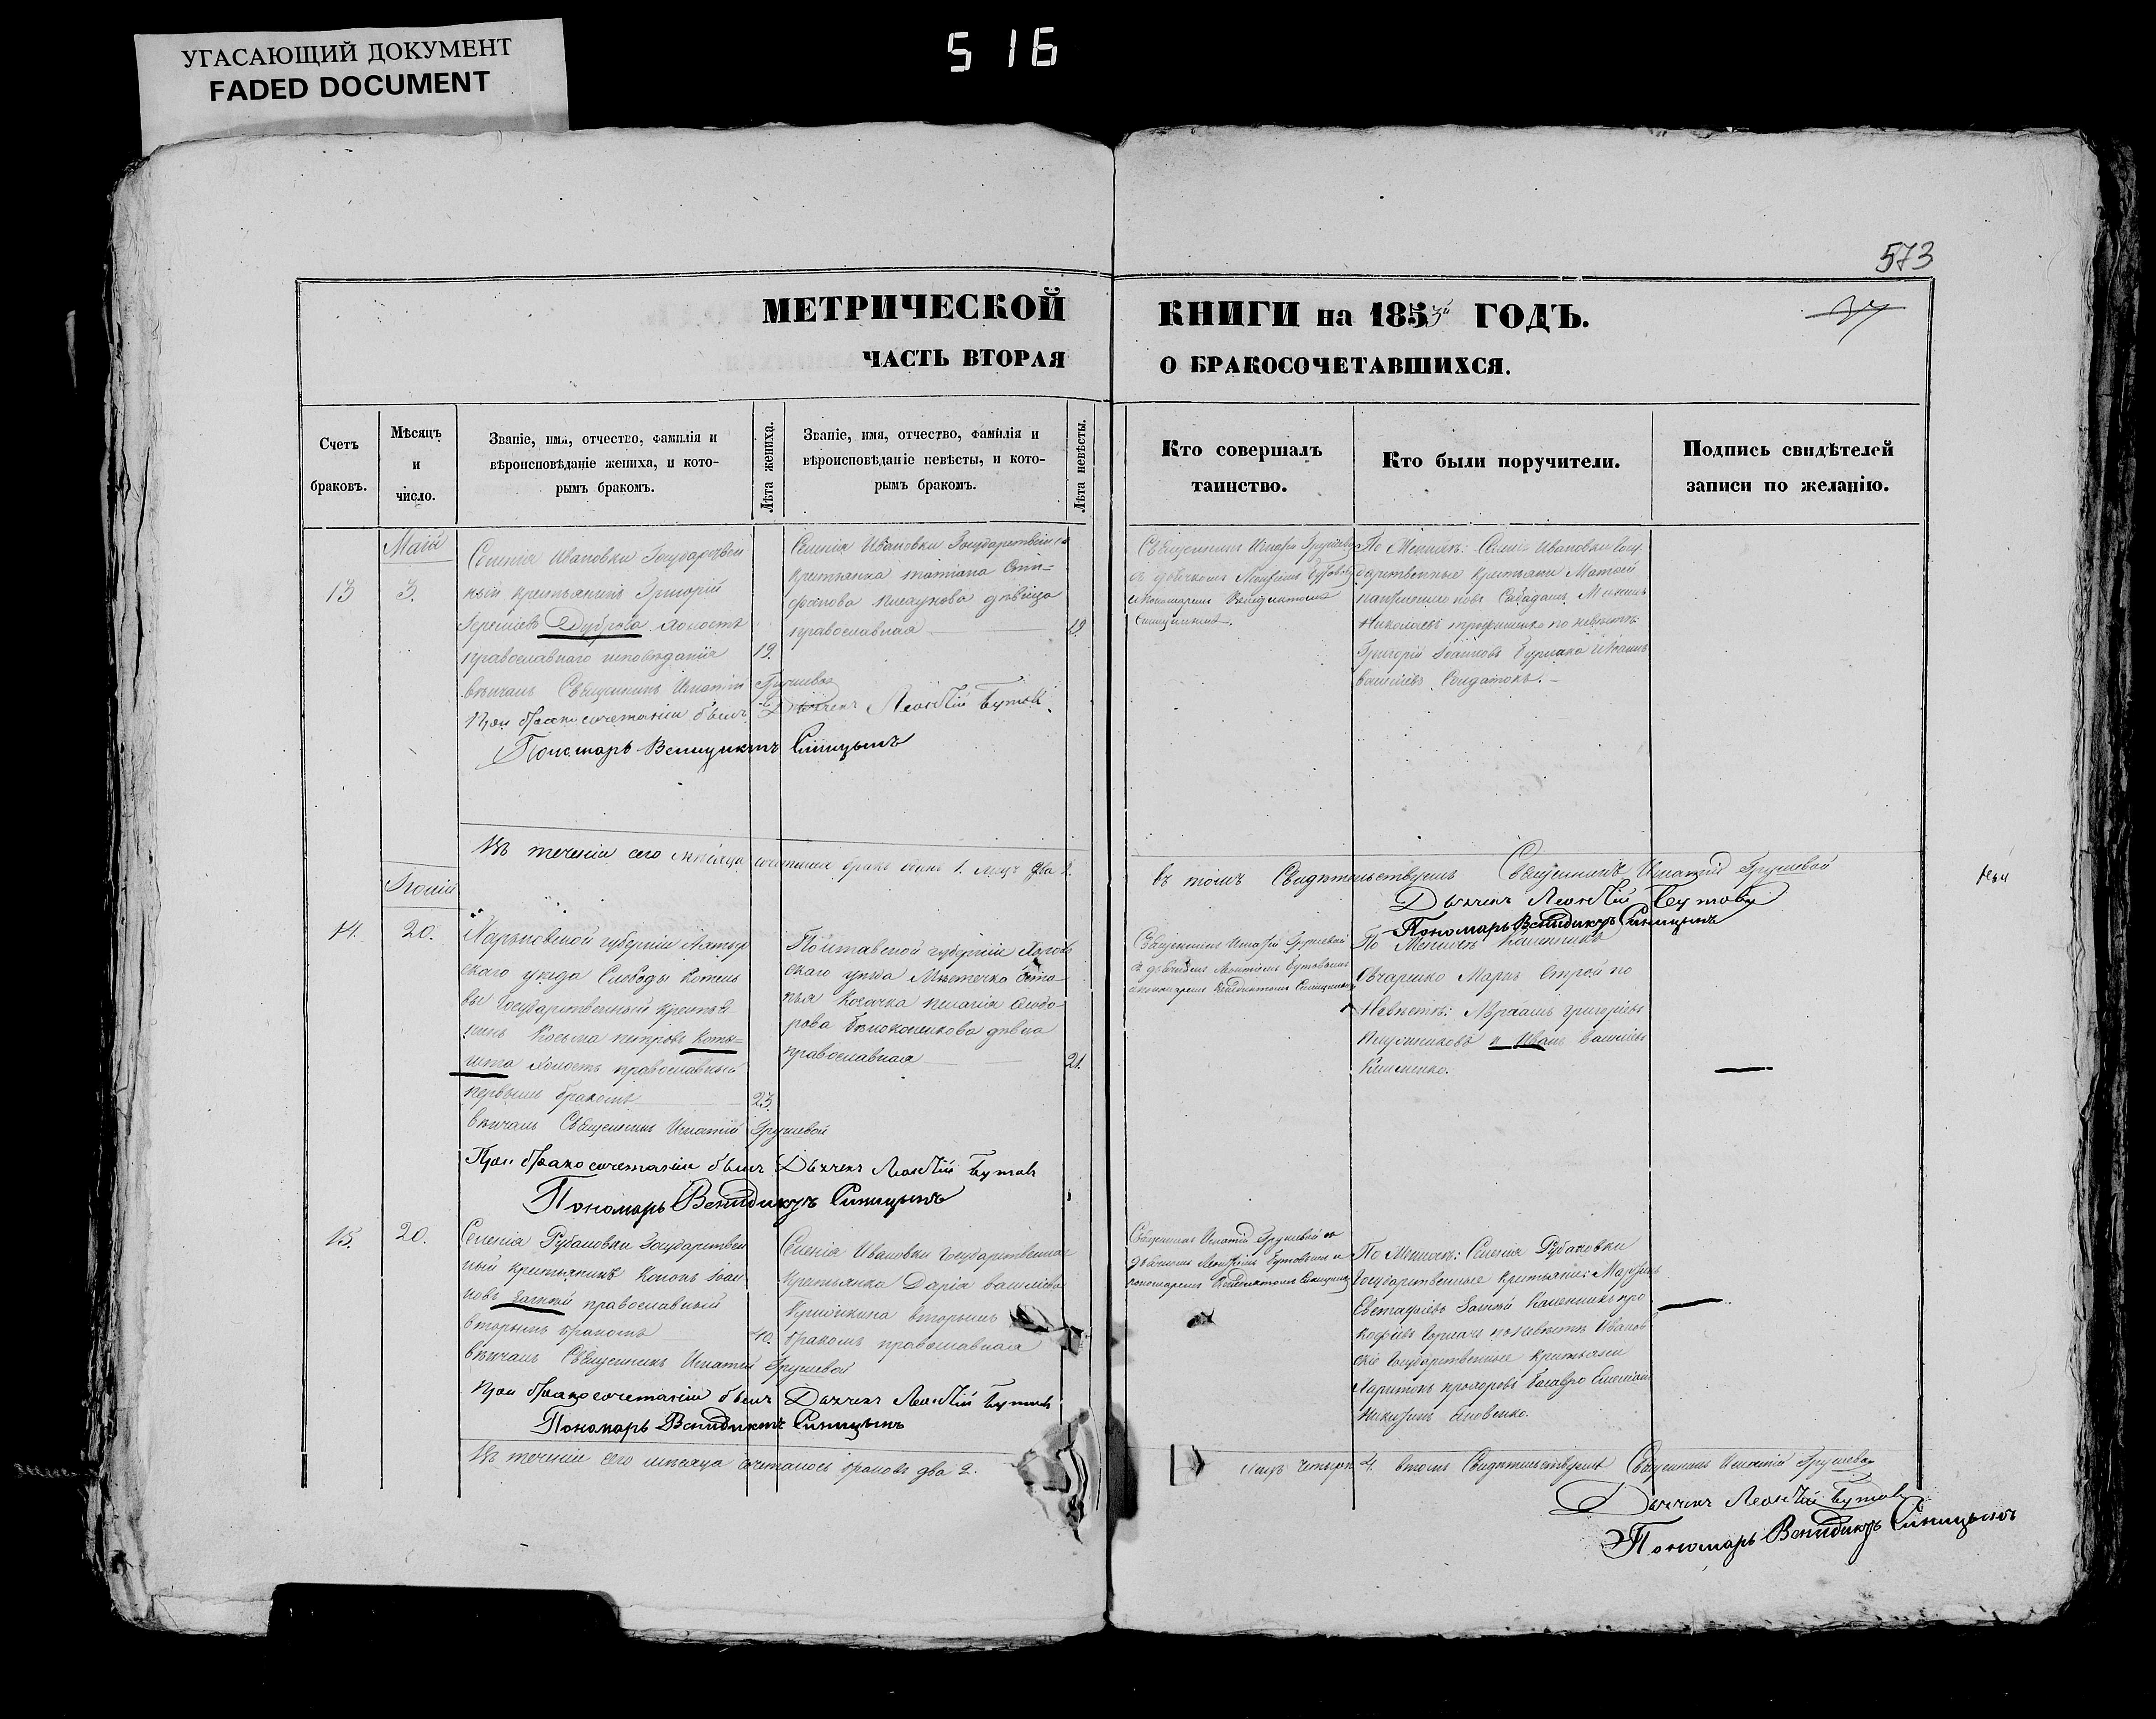 УГАСАЮЩИЙ ДОКУМЕНТ
FADED DOCUMENT
516
573
МЕТРИЧЕСКОЙ
КНИГИ на 1853 ГОДЪ.
ЧАСТЬ ВТОРАЯ
О БРАКОСОЧЕТАВШИХСЯ.
Счетъ
браковъ.
Мѣсяцъ
и
число.
Званіе, имя, отчество, фамилія и
вѣроисповѣданіе жениха, и кото-
рымъ бракомъ.
Лѣта жениха.
Званіе, имя, отчество, фамилія и
вѣроисповѣданіе невѣсты, и кото-
рымъ бракомъ.
Лѣта невѣсты.
Кто совершалъ
таинство.
Кто были поручители.
Подпись свидѣтелей
записи по желанію.
13
Маій
3.
Селенія Ивановки Государствен
ный крестьянинъ Григорій
Дуброва холостъ
православнаго исповѣданія
19.
вѣнчалъ Священникъ Игнатій Грушевой
При бракосочетаніи былъ Дьячекъ Леонтій Бутовъ
Пономарь Венидиктъ Синицынъ
Селенія Ивановки Государственная
крестьянка Татіана
дѣвица
православная
19.
Священникъ Игнатій Грушевой
съ дьячкомъ Леонтіемъ Бутовымъ
и пономаремъ Венедиктомъ
Синицынымъ.
По Женихѣ: Селенія Ивановки Госу
дарственные крестьяне Матвей
Николаевъ по невѣстѣ:
Григорій Іоанновъ
Солдатокъ.
Въ теченіи сего мѣсяца сочетался бракъ одинъ 1. лицъ два 2.
въ томъ Свидѣтельствуемъ Священникъ Игнатій Грушевой
Дьячекъ Леонтій Бутовъ
Пономарь Венидиктъ Синицынъ
Іюній
14.
20.
Харьковской губерніи Ахтыр
скаго уѣзда Слободы Котель
вы Государственный крестья-
нинъ Косьма Петровъ
холостъ православный
первымъ бракомъ
23.
вѣнчалъ Священникъ Игнатій Грушевой
При бракосочетаніи былъ Дьячекъ Леонтій Бутовъ
Пономарь Венидиктъ Синицынъ
Полтавской губерніи Хороль
скаго уѣзда Мѣстечка Оста-
пья Козачка Пелагія Ѳеодо-
рова Бѣлоконекова дѣвица
православная
21.
Священникъ Игнатій Грушевой
съ дьячкомъ Леонтіемъ Бутовымъ
и пономаремъ Венедиктомъ Синицынымъ
По Женихѣ: Калинникъ
Овчаренко Маркъ Строй по
Невѣстѣ: Авраамъ Григорьевъ
и Иванъ Васильевъ
Клименко.
15.
20.
Селенія Рубановки Государствен
ный крестьянинъ Кононъ Іоан
новъ православный
вторымъ бракомъ
40.
вѣнчалъ Священникъ Игнатій Грушевой
При бракосочетаніи былъ Дьячекъ Леонтій Бутовъ
Пономарь Венидиктъ Синицынъ
Селенія Ивановки Государственная
Крестьянка Дарія Васильева
вторымъ
бракомъ православная
Священникъ Игнатій Грушевой съ
дьячкомъ Леонтіемъ Бутовымъ и
пономаремъ Венедиктомъ Синицынымъ
По Женихѣ: Селенія Рубановки
Государственные крестьяне:
Евстафіевъ Калинникъ Про
кофіевъ по невѣстѣ Иванов
скіе Государственные крестьяне
Харитонъ Прохоровъ
Яковенко.
Въ теченіи сего мѣсяца сочеталось браковъ два 2.
лицъ четыре 4. въ томъ Свидѣтельствуемъ Священникъ Игнатій Грушевой
Дьячекъ Леонтій Бутовъ
Пономарь Венидиктъ Синицынъ